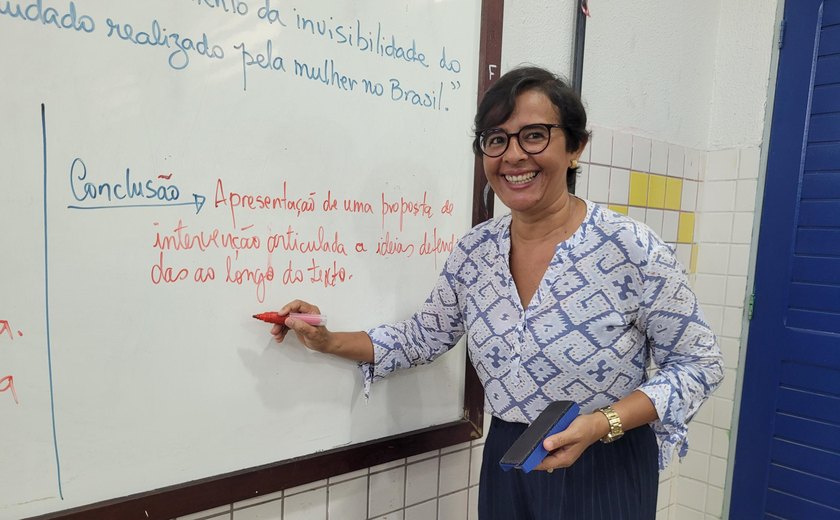 ento da invisibilidade do
uidado realizado pela mulher no Brasil."
Conclusão → Apresentação de uma proposta de
intervenção articulada a ideias defendi
das ao longo do texto.
a.
a
F